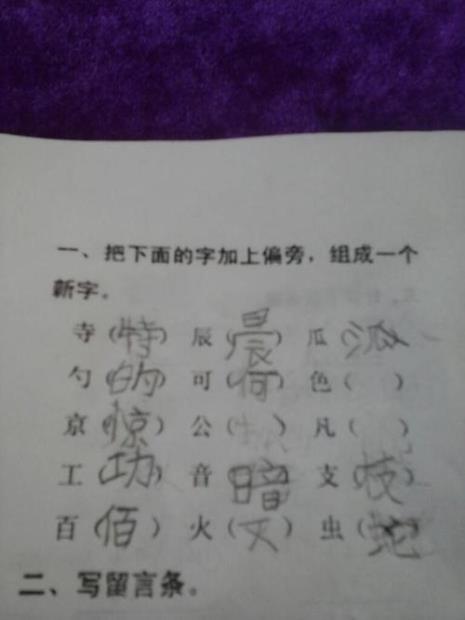 一、把下面的字加上偏旁，组成一个
新字。
寺（特） 辰（晨） 瓜（）
勺（的） 可（何） 色（ ）
京（惊） 公（ ） 凡（ ）
工（功） 音（暗） 支（枝）
百（佰） 火（灭） 虫（蛇）
二、写留言条。